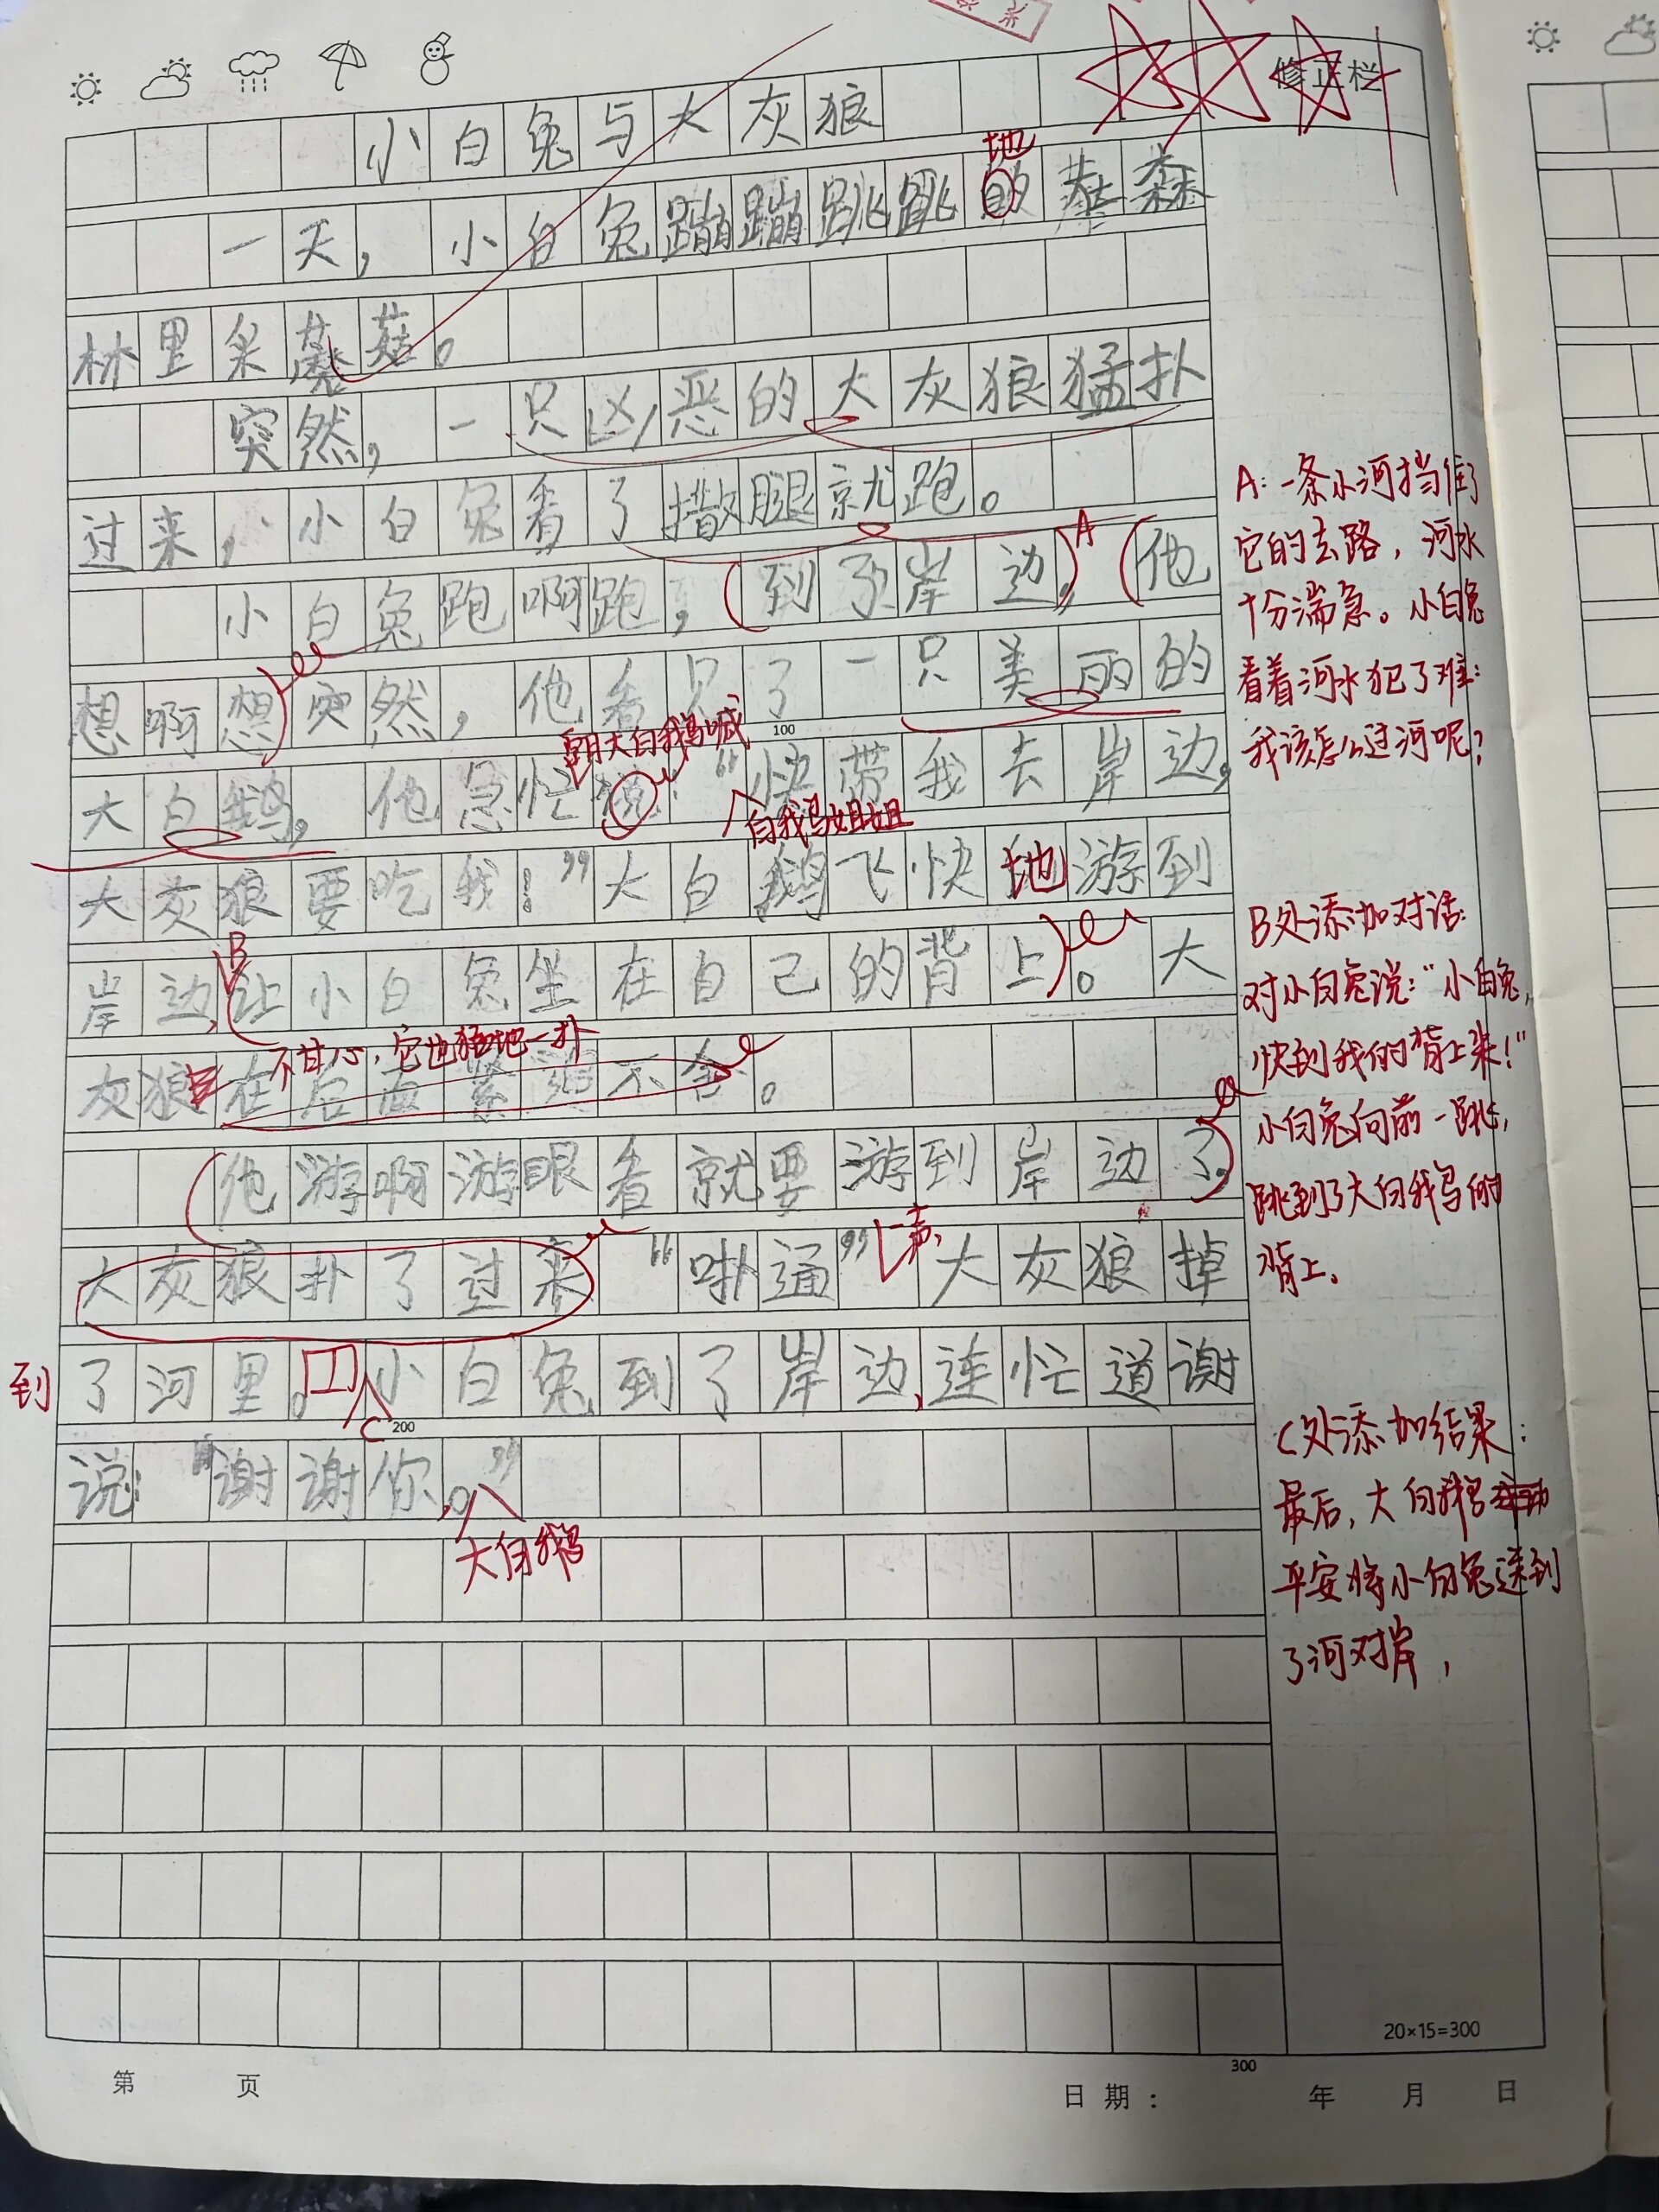 修正栏
小白兔与大灰狼
地
一天，小白兔蹦蹦跳跳的去森
林里采蘑菇。
突然，一只凶恶的大灰狼猛扑
过来，小白兔看了撒腿就跑。
A
小白兔跑啊跑，到了岸边，他
想啊想突然，他看只了一只美丽的
朝大白鹅喊
大白鹅，他急忙说“快带我去岸边，
白鹅姐姐
大灰狼要吃我！”大白鹅飞快地游到
B
岸边，让小白兔坐在自己的背上。大
不甘心，它也猛地一扑
灰狼在后面紧追不舍。
他游啊游眼看就要游到岸边了，
一声，
大灰狼扑了过来“咔通”大灰狼掉
到了河里。小白兔到了岸边，连忙道谢
C
200
说：“谢谢你，。”
大白鹅
A：一条小河挡住了
它的去路，河水
十分湍急。小白兔
看着河水犯了难：
我该怎么过河呢？
100
B处添加对话：
对小白兔说：“小白兔，
快到我的背上来！”
小白兔向前一跳，
跳到了大白鹅的
背上。
C处添加结果：
最后，大白鹅
平安将小白兔送到
了河对岸，
20×15=300
300
第 页
日期： 年 月 日